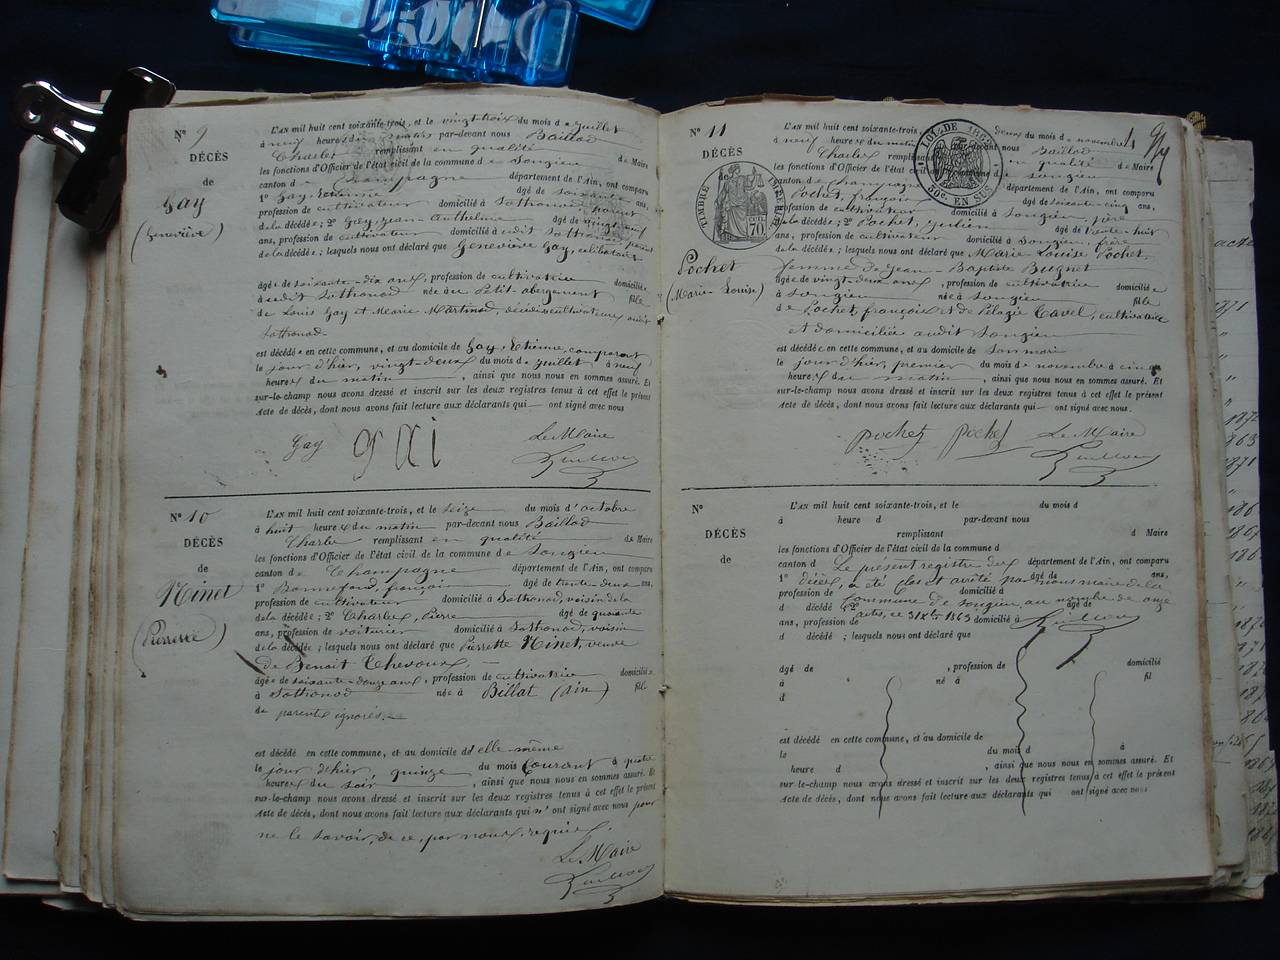 N° 9
DÉCÈS
de
Gay
(Geneviève)
L'AN mil huit cent soixante-trois, et le vingt-trois du mois de juillet
à neuf heures du matin par-devant nous Baillod
Charles remplissant en qualité de Maire
les fonctions d'Officier de l'état civil de la commune de Songieu
canton de Champagne département de l'Ain, ont comparu
1° Gay, Etienne âgé de soixante ans,
profession de cultivateur domicilié à Sothonod parent
de la décédée; 2° Gay, Jean Anthelme âgé de vingt-neuf
ans, profession de cultivateur domicilié à udit Sothonod parent
de la décédée; lesquels nous ont déclaré que Geneviève Gay, célibataire
âgée de soixante-dix ans, profession de cultivatrice domiciliée
à udit Sothonod née au Petit-abergement fille
de Louis Gay et Marie Martinod, décédés cultivateurs audit
Sothonod.
est décédée en cette commune, et au domicile de Gay, Etienne, comparant
le jour d'hier, vingt-deux du mois de juillet à neuf
heures du matin, ainsi que nous nous en sommes assuré. Et
sur-le-champ nous avons dressé et inscrit sur les deux registres tenus à cet effet le présent
acte de décès, dont nous avons fait lecture aux déclarants qui ont signé avec nous
Gay gai Le Maire
N° 10
DÉCÈS
de
Ninet
(Pierrette)
L'AN mil huit cent soixante-trois, et le seize du mois d'octobre
à huit heures du matin par-devant nous Baillod
Charles remplissant en qualité de Maire
les fonctions d'Officier de l'état civil de la commune de Songieu
canton de Champagne département de l'Ain, ont comparu
1° Bonnefond, françois âgé de trente-deux ans,
profession de cultivateur domicilié à Sothonod, voisin de la
de la décédée; 2° Charles, Pierre âgé de quarante
ans, profession de voiturier domicilié à Sothonod, voisin
de la décédée; lesquels nous ont déclaré que Pierrette Ninet, veuve
de Benoit Thevoux,
âgée de soixante-douze ans, profession de cultivatrice domiciliée
à Sothonod née à Billat (Ain) fille
de parents ignorés.
est décédé en cette commune, et au domicile d'elle-même
le jour d'hier, quinze du mois courant à quatre
heures du soir, ainsi que nous nous en sommes assuré. Et
sur-le-champ nous avons dressé et inscrit sur les deux registres tenus à cet effet le présent
acte de décès, dont nous avons fait lecture aux déclarants qui n'ont signé avec nous pour
ne le savoir, de ce, par nous, requis.
Le Maire
N° 11
DÉCÈS
de
Pochet
(Marie-Louise)
TIMBRE IMPÉRIAL
70
LOI DE 1862
50c. EN SUS
L'AN mil huit cent soixante-trois, deux du mois de novembre
à neuf heures du matin par-devant nous Baillod
Charles remplissant en qualité de Maire
les fonctions d'Officier de l'état civil de Songieu
canton de Champagne département de l'Ain, ont comparu
Pochet, françois âgé de soixante-cinq ans,
profession de cultivateur domicilié à Songieu, père
de la décédée; 2° Pochet, Julien âgé de trente-huit
ans, profession de cultivateur domicilié à Songieu, frère
de la décédée; lesquels nous ont déclaré que Marie-Louise Pochet,
femme de Jean-Baptiste Bugnet
âgée de vingt-deux ans, profession de cultivatrice domiciliée
à Songieu née à Songieu fille
de Pochet, françois et de Pélagie Cavel, cultivatrice
et domiciliée audit Songieu
est décédée en cette commune, et au domicile de son mari
le jour d'hier, premier du mois de novembre à cinq
heures du matin, ainsi que nous nous en sommes assuré. Et
sur-le-champ nous avons dressé et inscrit sur les deux registres tenus à cet effet le présent
acte de décès, dont nous avons fait lecture aux déclarants qui ont signé avec nous.
pochet pochet Le Maire
N°
DÉCÈS
de
L'AN mil huit cent soixante-trois, et le du mois d
à heure d par-devant nous
remplissant d Maire
les fonctions d'Officier de l'état civil de la commune d
canton d Le présent registre des département de l'Ain, ont comparu
1° décès, a été clos et arrêté par nous maire de la âgé de ans,
profession de commune de Songieu, au nombre de onze domicilié à
d décédé; 2° actes, ce 31 Xbre 1863 âgé de
ans, profession de domicilié à
d décédé; lesquels nous ont déclaré que
âgé de , profession de domicilié
à né à fil
d
est décédé en cette commune, et au domicile de
le du mois d à
heure d , ainsi que nous nous en sommes assuré. Et
sur-le-champ nous avons dressé et inscrit sur les deux registres tenus à cet effet le présent
acte de décès, dont nous avons fait lecture aux déclarants qui ont signé avec nous